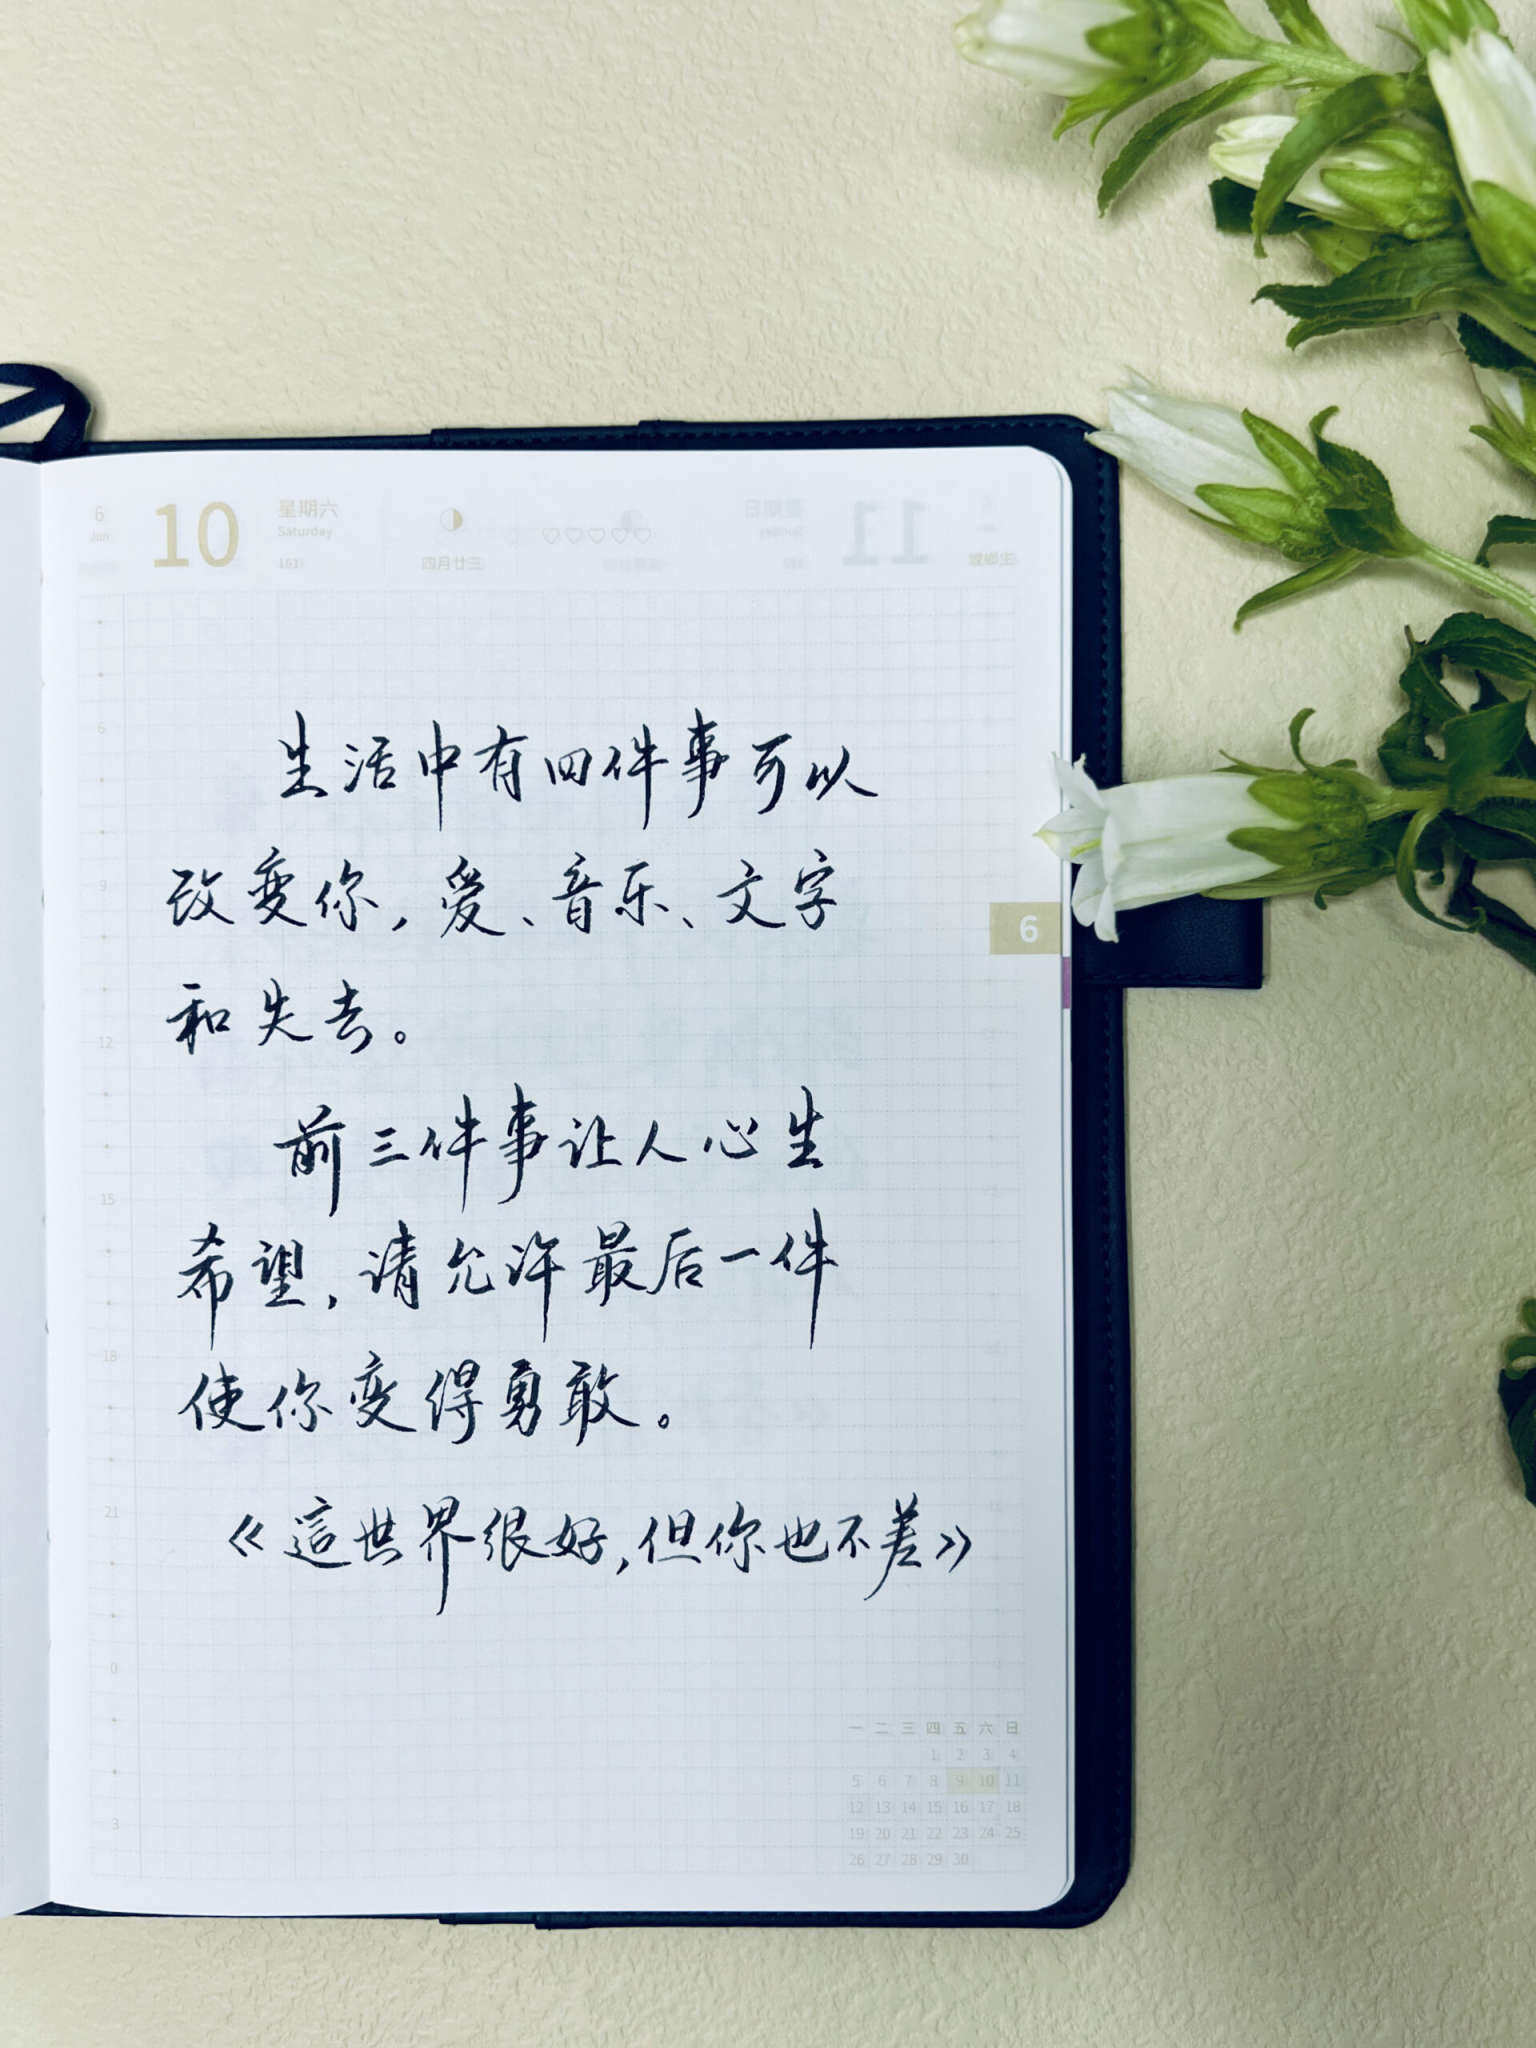 6
Jun
10
星期六
Saturday
161
四月廿三
6
生活中有四件事可以
改变你，爱、音乐、文字
和失去。
前三件事让人心生
希望，请允许最后一件
使你变得勇敢。
《這世界很好，但你也不差》
6
9
12
15
18
21
0
3
一 二 三 四 五 六 日
1 2 3 4
5 6 7 8 9 10 11
12 13 14 15 16 17 18
19 20 21 22 23 24 25
26 27 28 29 30